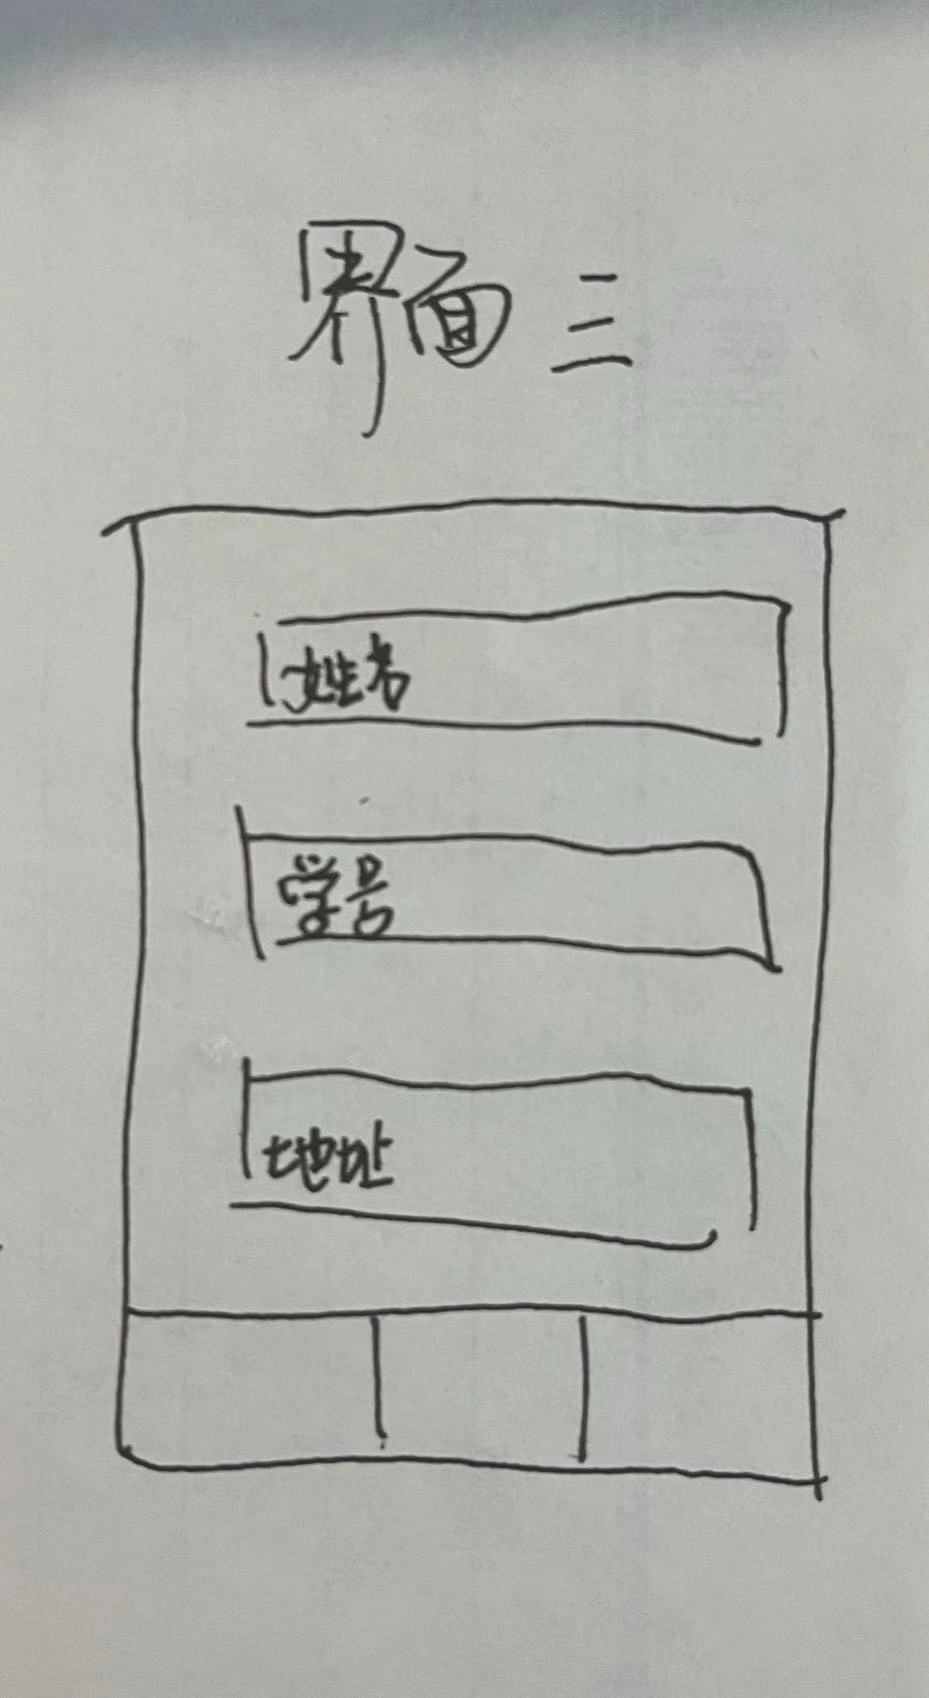 界面三
姓名
学号
地址